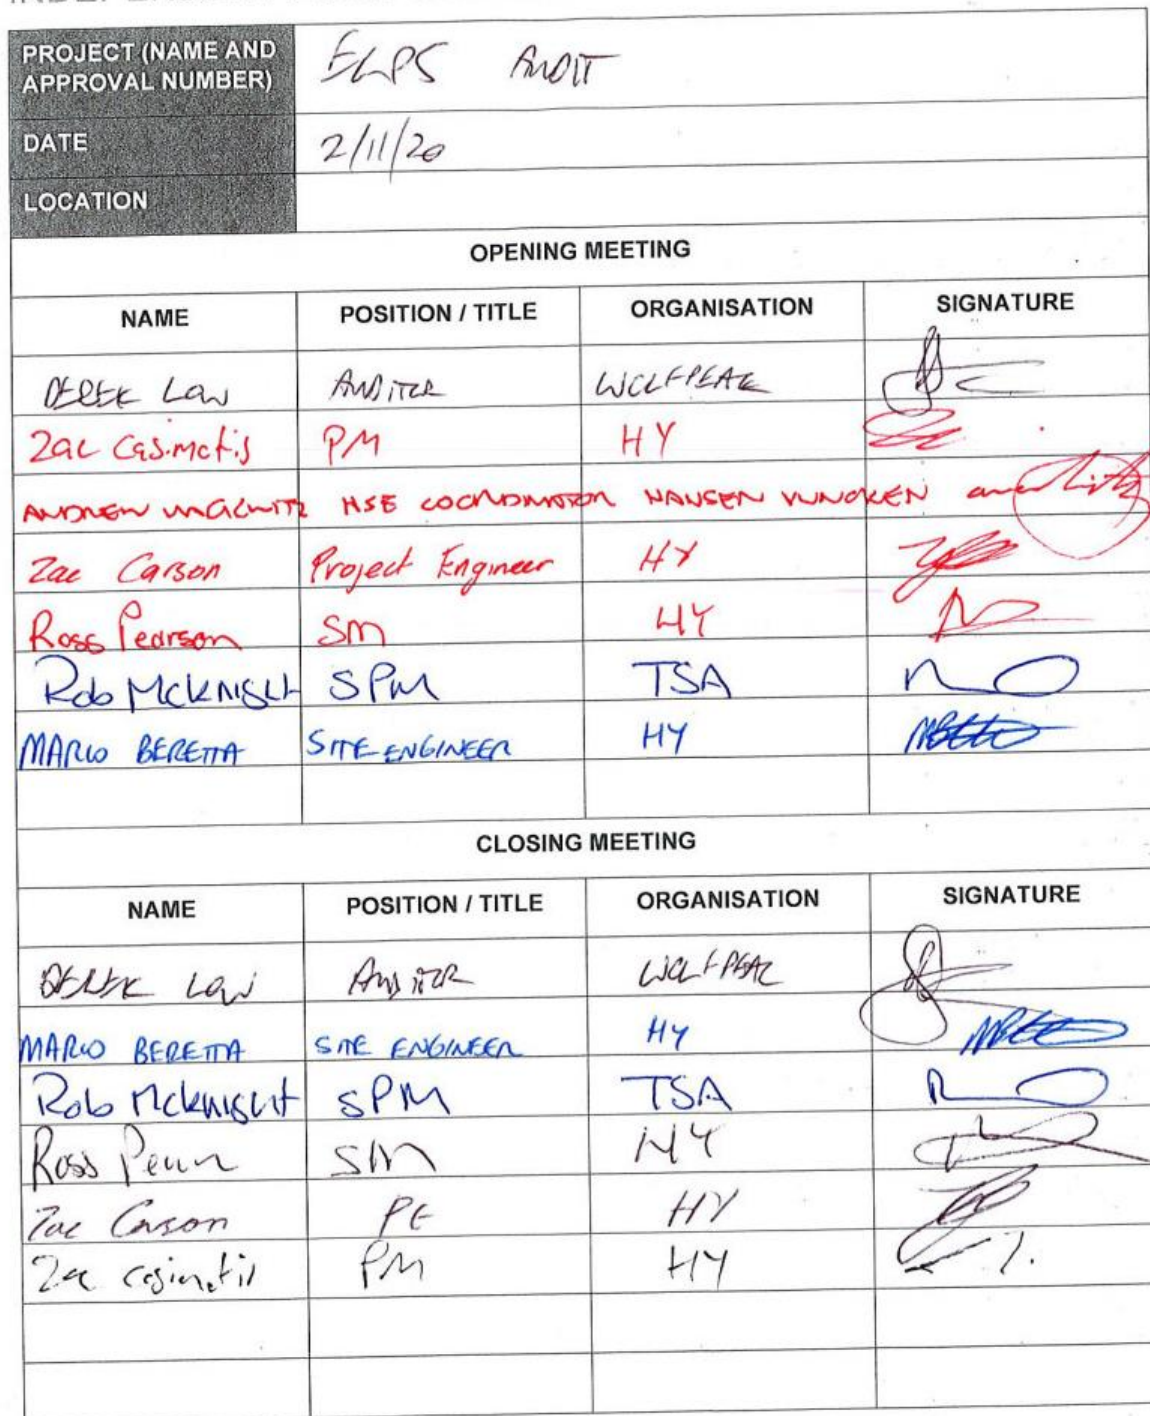 PROJECT (NAME AND APPROVAL NUMBER) ELPS AUDIT
DATE 2/11/20
LOCATION
OPENING MEETING
NAME POSITION / TITLE ORGANISATION SIGNATURE
DEREK LOW AUDITOR WOLFPEAK
Zac Casimatis PM HY
ANDREW HSE COORDINATOR HANSEN YUNCKEN
Zac Carson Project Engineer HY
Ross Pearson SM HY
Rob McKnight SPM TSA
MARIO BERETTA SITE ENGINEER HY
CLOSING MEETING
NAME POSITION / TITLE ORGANISATION SIGNATURE
DEREK LOW AUDITOR WOLFPEAK
MARIO BERETTA SITE ENGINEER HY
Rob McKnight SPM TSA
Ross SM HY
Zac Carson PE HY
Zac Casimatis PM HY